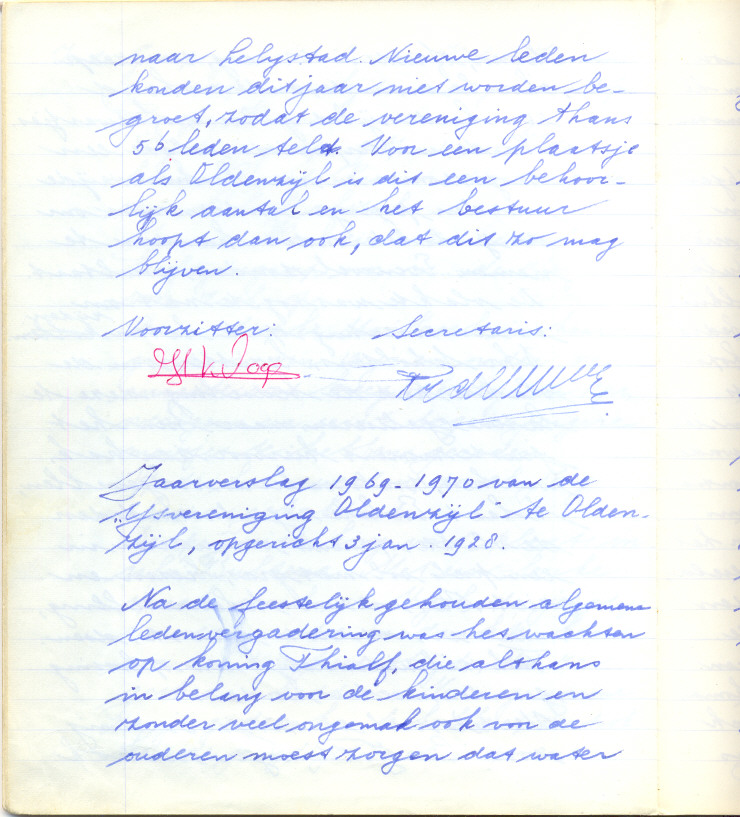 naar Lelystad. Nieuwe leden
konden dit jaar niet worden be-
groet, zodat de vereniging thans
56 leden telt. Voor een plaatsje
als Oldenzijl is dit een behoor-
lijk aantal en het bestuur
hoopt dan ook, dat dit zo mag
blijven.
Voorzitter: Secretaris:
Jaarverslag 1969-1970 van de
"IJsvereniging Oldenzijl" te Olden-
zijl, opgericht 3 jan. 1928.
Na de feestelijk gehouden algemene
ledenvergadering was het wachten
op koning Thialf, die althans
in belang voor de kinderen en
zonder veel ongemak ook voor de
ouderen moest zorgen dat water